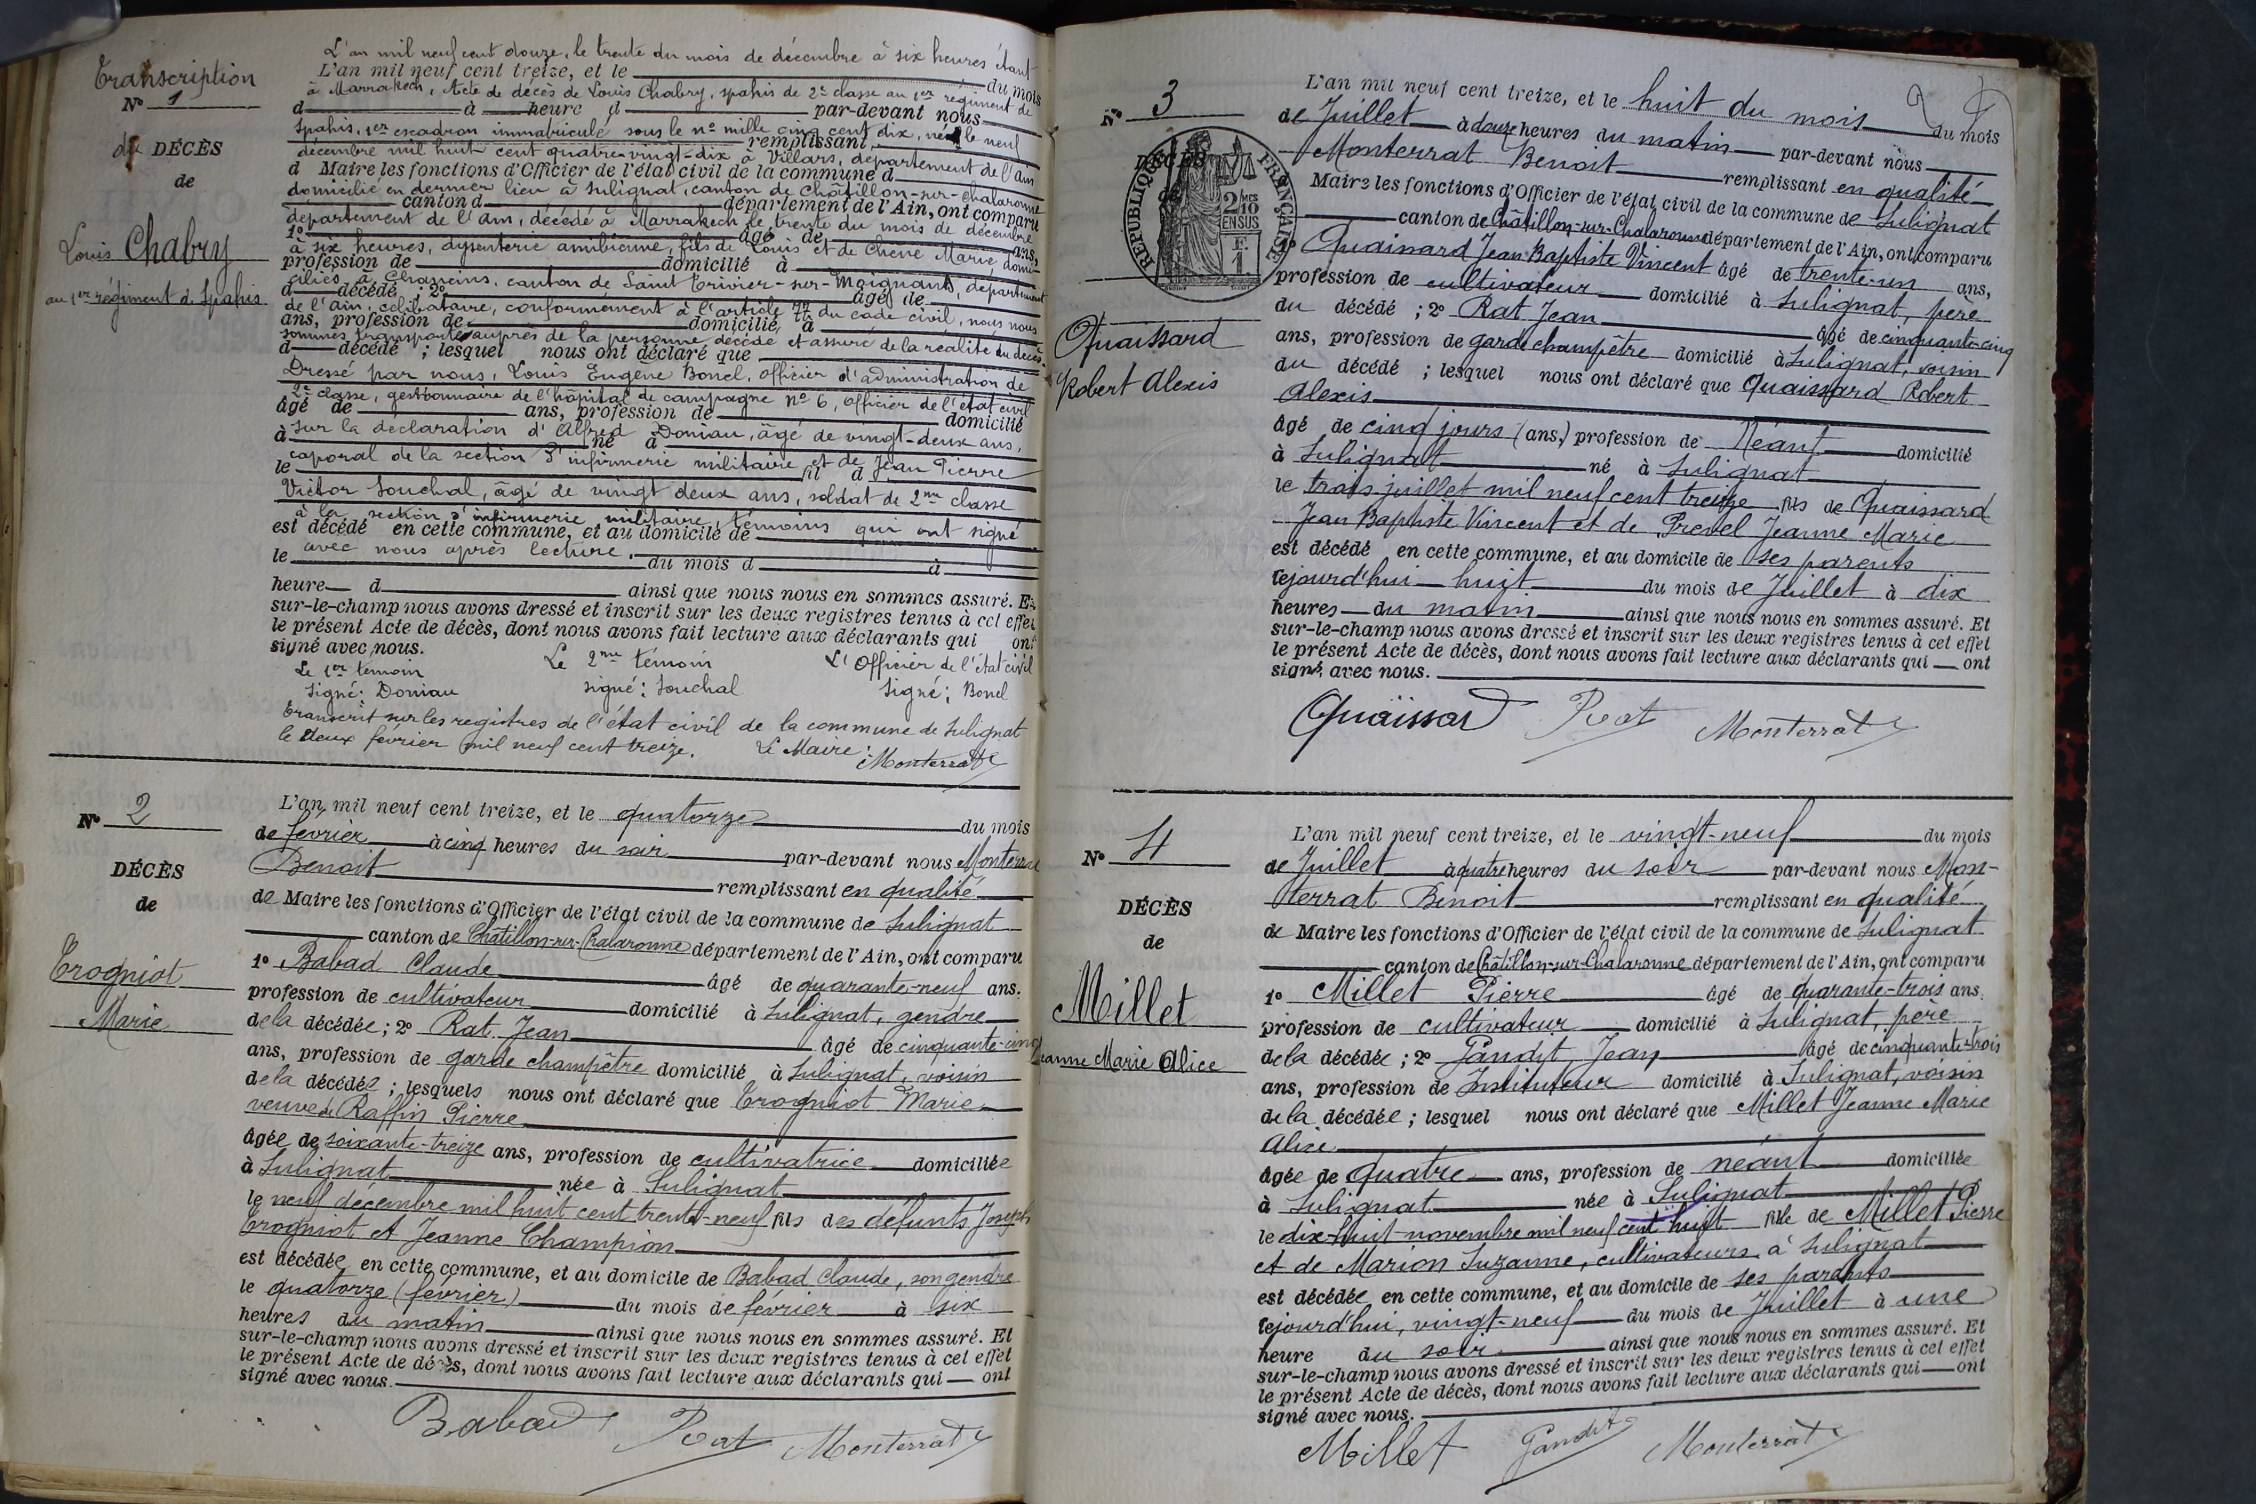 Transcription
N° 1
de DÉCÈS
de
Louis Chabry
au 1er régiment de Spahis.
L'an mil neuf cent douze, le trente du mois de décembre à six heures étant
L'an mil neuf cent treize, et le du mois
à Marrakech, Acte de décès de Louis Chabry, spahis de 2e classe au 1er régiment de
d à heure d par-devant nous
Spahis, 1er escadron immatriculé sous le n° mille cinq cent dix, né le neuf
remplissant
décembre mil huit cent quatre-vingt-dix à Villars, département de l'ain
d Maire les fonctions d'Officier de l'état civil de la commune d
domicilié en dernier lieu à Sulignat, canton de Châtillon-sur-Chalaronne
canton d département de l'Ain, ont comparu
département de l'ain, décédé à Marrakech le trente du mois de décembre
1° âgé de ans,
à six heures, dysenterie amibienne, fils de Louis et de Chêne Marie domi-
profession de domicilié à
ciliés à Chaneins, canton de Saint Trivier-sur-Moignans, département
d décédé ; 2° âgé de
de l'ain, célibataire, conformément à l'article 77 du code civil, nous nous
ans, profession de domicilié à
sommes transporté auprès de la personne décédé et assuré de la réalité du décès.
d décédé ; lesquel nous ont déclaré que
Dressé par nous, Louis Eugène Bonel, officier d'administration de
2e classe, gestionnaire de l'hôpital de campagne n° 6, officier de l'état civil
âgé de ans, profession de domicilié
sur la déclaration d'Alfred Doniau, âgé de vingt-deux ans,
à né à
caporal de la section d'infirmerie militaire et de Jean Pierre
le fil d
Victor Souchal, âgé de vingt deux ans, soldat de 2me classe
à la section d'infirmerie militaire, témoins qui ont signé
est décédé en cette commune, et au domicile de
avec nous après lecture.
le du mois d à
heure d ainsi que nous nous en sommes assuré. Et
sur-le-champ nous avons dressé et inscrit sur les deux registres tenus à cet effet
le présent Acte de décès, dont nous avons fait lecture aux déclarants qui ont
signé avec nous.
Le 1er témoin Le 2me témoin L'Officier de l'état civil
signé: Doniau signé: Souchal signé: Bonel
Transcrit sur les registres de l'état civil de la commune de Sulignat
le deux février mil neuf cent treize. Le Maire:
Monterrat
N° 2
DÉCÈS
de
Trogniot
Marie
L'an mil neuf cent treize, et le quatorze du mois
de février à cinq heures du soir par-devant nous Monterrat
Benoit remplissant en qualité
de Maire les fonctions d'Officier de l'état civil de la commune de Sulignat
canton de Châtillon-sur-Chalaronne département de l'Ain, ont comparu
1° Babad Claude âgé de quarante-neuf ans.
profession de cultivateur domicilié à Sulignat, gendre
de la décédée ; 2° Rat Jean âgé de cinquante-cinq
ans, profession de garde champêtre domicilié à Sulignat, voisin
de la décédée ; lesquels nous ont déclaré que Trogniot Marie
veuve de Raffin Pierre
âgée de soixante-treize ans, profession de cultivatrice domiciliée
à Sulignat née à Sulignat
le neuf décembre mil huit cent trente-neuf fils des défunts Joseph
Trogniot et Jeanne Champion
est décédée en cette commune, et au domicile de Babad Claude, son gendre
le quatorze (février) du mois de février à six
heures du matin ainsi que nous nous en sommes assuré. Et
sur-le-champ nous avons dressé et inscrit sur les deux registres tenus à cet effet
le présent Acte de décès, dont nous avons fait lecture aux déclarants qui ont
signé avec nous.
Babad Rat Monterrat
N° 3
DÉCÈS
de
RÉPUBLIQUE FRANÇAISE
2/10 MES
EN SUS
F.
1
Quaissard
Robert Alexis
L'an mil neuf cent treize, et le huit du mois du mois
de Juillet à douze heures du matin par-devant nous
Monterrat Benoit remplissant en qualité
Maire les fonctions d'Officier de l'état civil de la commune de Sulignat
canton de Châtillon-sur-Chalaronne département de l'Ain, ont comparu
Quaissard Jean Baptiste Vincent âgé de trente-un ans,
profession de cultivateur domicilié à Sulignat, père
du décédé ; 2° Rat Jean âgé de cinquante-cinq
ans, profession de garde champêtre domicilié à Sulignat, voisin
du décédé ; lesquel nous ont déclaré que Quaissard Robert
Alexis
âgé de cinq jours (ans,) profession de Néant domicilié
à Sulignat né à Sulignat
le trois juillet mil neuf cent treize fils de Quaissard
Jean Baptiste Vincent et de Prevel Jeanne Marie
est décédé en cette commune, et au domicile de ses parents
cejourd'hui huit du mois de Juillet à dix
heures du matin ainsi que nous nous en sommes assuré. Et
sur-le-champ nous avons dressé et inscrit sur les deux registres tenus à cet effet
le présent Acte de décès, dont nous avons fait lecture aux déclarants qui ont
signé avec nous.
Quaïssard Rat Monterrat
N° 4
DÉCÈS
de
Millet
Jeanne Marie Alice
L'an mil neuf cent treize, et le vingt-neuf du mois
de Juillet à quatre heures du soir par-devant nous Mon-
terrat Benoit remplissant en qualité
de Maire les fonctions d'Officier de l'état civil de la commune de Sulignat
canton de Châtillon-sur-Chalaronne département de l'Ain, ont comparu
1° Millet Pierre âgé de quarante-trois ans.
profession de cultivateur domicilié à Sulignat, père
de la décédée ; 2° Gandit Jean âgé de cinquante-trois
ans, profession de Instituteur domicilié à Sulignat, voisin
de la décédée ; lesquel nous ont déclaré que Millet Jeanne Marie
Alice
âgée de quatre ans, profession de néant domiciliée
à Sulignat née à Sulignat
le dix-huit novembre mil neuf cent huit fille de Millet Pierre
et de Marion Suzanne, cultivateurs à Sulignat
est décédée en cette commune, et au domicile de ses parents
cejourd'hui, vingt-neuf du mois de Juillet à une
heure du soir ainsi que nous nous en sommes assuré. Et
sur-le-champ nous avons dressé et inscrit sur les deux registres tenus à cet effet
le présent Acte de décès, dont nous avons fait lecture aux déclarants qui ont
signé avec nous.
Millet Gandit Monterrat